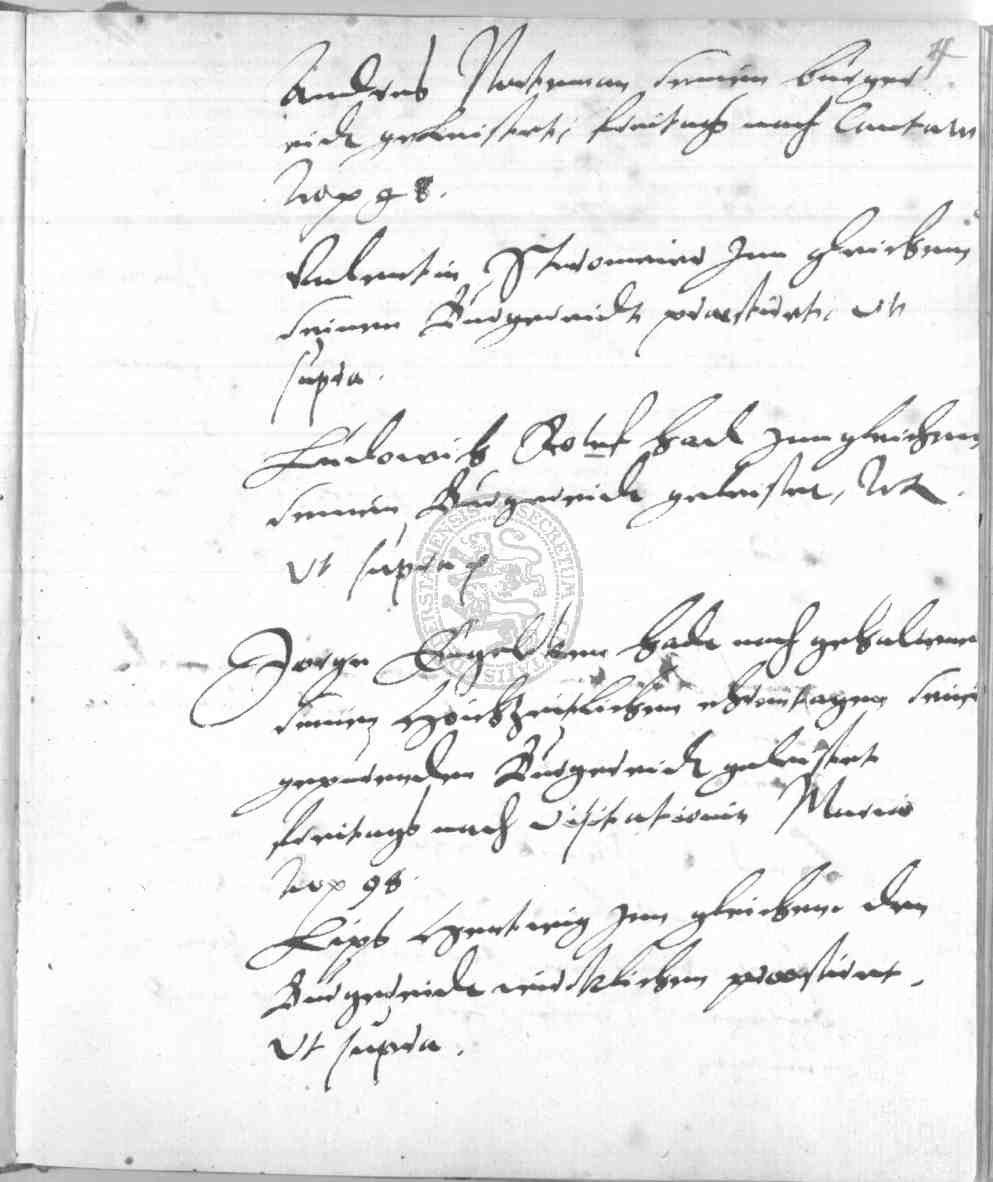 4
Andreas Nortman seinen burger
eidt geleistet, freitags nach Cantate
Anno 98.
Valentin Stromeier Im gleichenn
seinen Burgereidt praestirt, Ut
supra.
Ludowich Rolef hadt Im gleichenn
seinen Burgereidt geleistet,
Ut supra
Jorge Engelken hadt nach gehaltenen
seinen Hochzeitlichen ehrentagen seinen
gepurenden Burgereidt geleistet
freitags nach Visitationis Mariae
Anno 98.
Lips Hertwig Im gleichenn den
Burgereidt wirklichen praestirt.
Ut supra.
SECRETUM